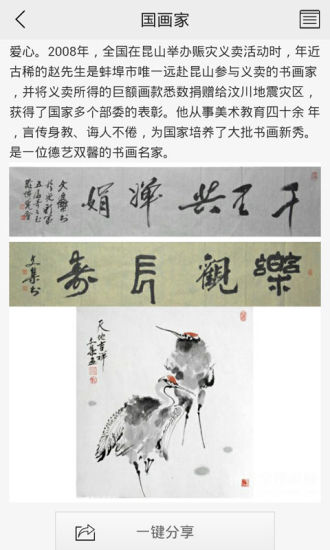 国画家
爱心。2008年，全国在昆山举办赈灾义卖活动时，年近
古稀的赵先生是蚌埠市唯一远赴昆山参与义卖的书画家
，并将义卖所得的巨额画款悉数捐赠给汶川地震灾区，
获得了国家多个部委的表彰。他从事美术教育四十余 年
，言传身教、诲人不倦，为国家培养了大批书画新秀。
是一位德艺双馨的书画名家。
樂觀長壽
文集书
天地吉祥
文集画
一键分享